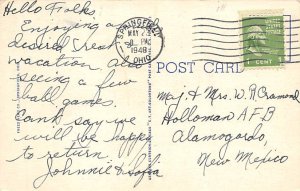 Hello Folks
Enjoying a
desired rest
vacation and
seeing a few
ball games.
Can't say we
will be happy
to return.
Johnnie & Sofia
SPRINGFIELD
MAY
PM
1948
OHIO
1 CENT 1
POST CARD
Maj & Mrs. W. R. Cramond
Holloman A F B
Alamogordo,
New Mexico